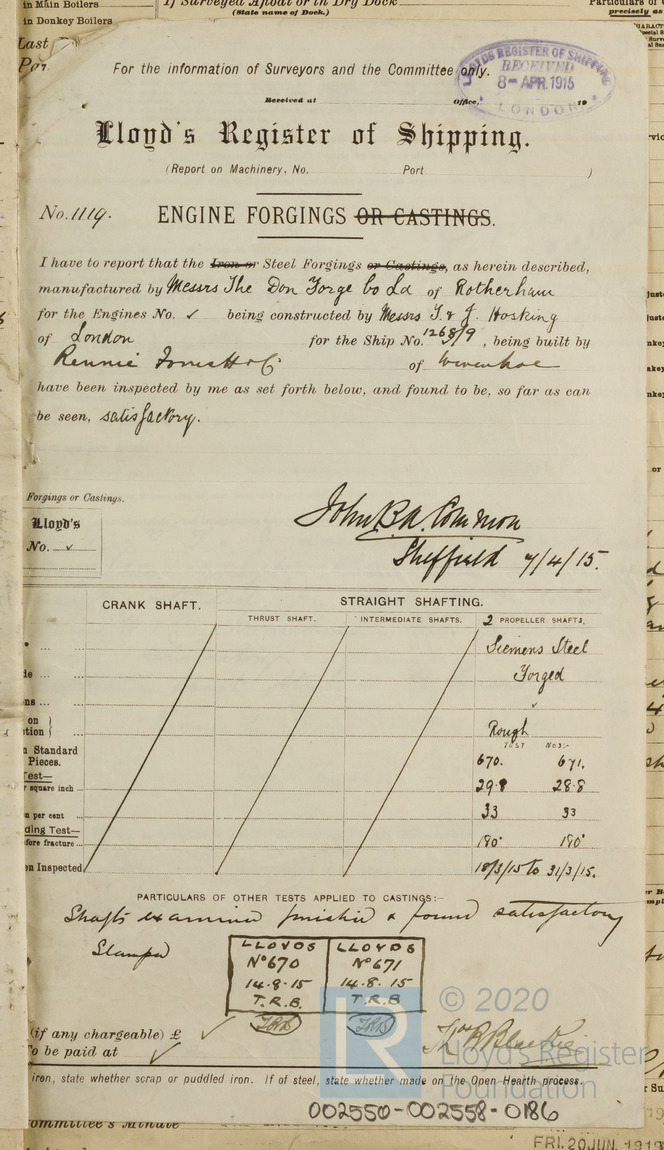 in Main Boilers
in Donkey Boilers
If Surveyed Afloat or in Dry Dock
(State name of Dock.)
Particulars of
precisely as
Last
Por
For the information of Surveyors and the Committee only.
LLOYDS REGISTER OF SHIPPING
RECEIVED
8-APR.1915
LONDON
Received at Office, 19
Lloyd's Register of Shipping.
(Report on Machinery, No. Port )
No. 1119. ENGINE FORGINGS OR CASTINGS.
I have to report that the Iron or Steel Forgings or Castings, as herein described,
manufactured by Messrs The Don Forge Co Ld of Rotherham
for the Engines No. ✓ being constructed by Messrs T. & J. Hosking
of London for the Ship No. 1268/9, being built by
Rennie Forrestt & Co of Wivenhoe
have been inspected by me as set forth below, and found to be, so far as can
be seen, satisfactory.
Forgings or Castings.
Lloyd's
No. ✓
John B.A. Common
Sheffield 7/4/15.
CRANK SHAFT. STRAIGHT SHAFTING.
THRUST SHAFT. INTERMEDIATE SHAFTS. 2 PROPELLER SHAFTS.
Siemens Steel
Forged
on }
tion } Rough
Test Nos:-
Standard
Pieces. 670. 671.
Test—
square inch ... 29.8 28.8
per cent ... 33 33
ding Test—
fore fracture ... 180° 180°
en Inspected 18/3/15 to 31/3/15.
PARTICULARS OF OTHER TESTS APPLIED TO CASTINGS:-
Shafts examined finished & found satisfactory
Stamped
LLOYDS LLOYDS
No 670 No 671
14.8.15 14.8.15
T.R.B. T.R.B
TRB TRB
(if any chargeable) £ ✓
To be paid at ✓
© 2020
Lloyd's Register
Foundation
iron, state whether scrap or puddled iron. If of steel, state whether made on the Open Hearth process.
002550-002558-0186
Committee's Minute
FRI. 20 JUN. 1919